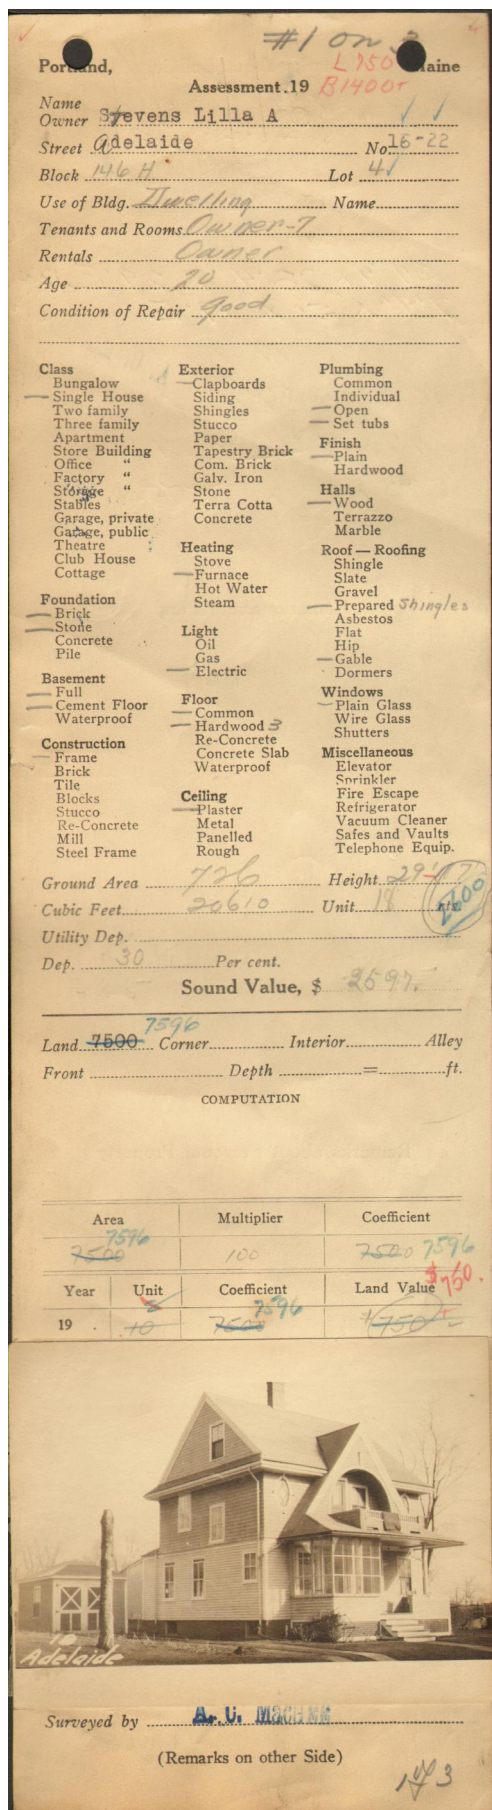 #1 on 3
Portland, Maine
L 750
Assessment 19 B1400+
Name
Owner Stevens Lilla A
Street Adelaide No 16-22
Block 146 H Lot 4
Use of Bldg. Dwelling Name
Tenants and Rooms Owner-7
Rentals Owner
Age 20
Condition of Repair good
Class
Bungalow
Single House
Two family
Three family
Apartment
Store Building
Office "
Factory "
Storage "
Stables
Garage, private
Garage, public
Theatre
Club House
Cottage
Foundation
Brick
Stone
Concrete
Pile
Basement
Full
Cement Floor
Waterproof
Construction
Frame
Brick
Tile
Blocks
Stucco
Re-Concrete
Mill
Steel Frame
Exterior
Clapboards
Siding
Shingles
Stucco
Paper
Tapestry Brick
Com. Brick
Galv. Iron
Stone
Terra Cotta
Concrete
Heating
Stove
Furnace
Hot Water
Steam
Light
Oil
Gas
Electric
Floor
Common
Hardwood 3
Re-Concrete
Concrete Slab
Waterproof
Ceiling
Plaster
Metal
Panelled
Rough
Plumbing
Common
Individual
Open
Set tubs
Finish
Plain
Hardwood
Halls
Wood
Terrazzo
Marble
Roof — Roofing
Shingle
Slate
Gravel
Prepared Shingles
Asbestos
Flat
Hip
Gable
Dormers
Windows
Plain Glass
Wire Glass
Shutters
Miscellaneous
Elevator
Sprinkler
Fire Escape
Refrigerator
Vacuum Cleaner
Safes and Vaults
Telephone Equip.
Ground Area 726 Height 29
Cubic Feet 20610 Unit 18 cts.
2600
Utility Dep.
Dep. 30 Per cent.
Sound Value, $ 2597.
7596
Land 7500 Corner Interior Alley
Front Depth = ft.
COMPUTATION
Area Multiplier Coefficient
7596
7500 100 7500 7596
Year Unit Coefficient Land Value $750.
8 7596
19 10 7500 $750
16
Adelaide
Surveyed by
(Remarks on other Side)
1 of 3